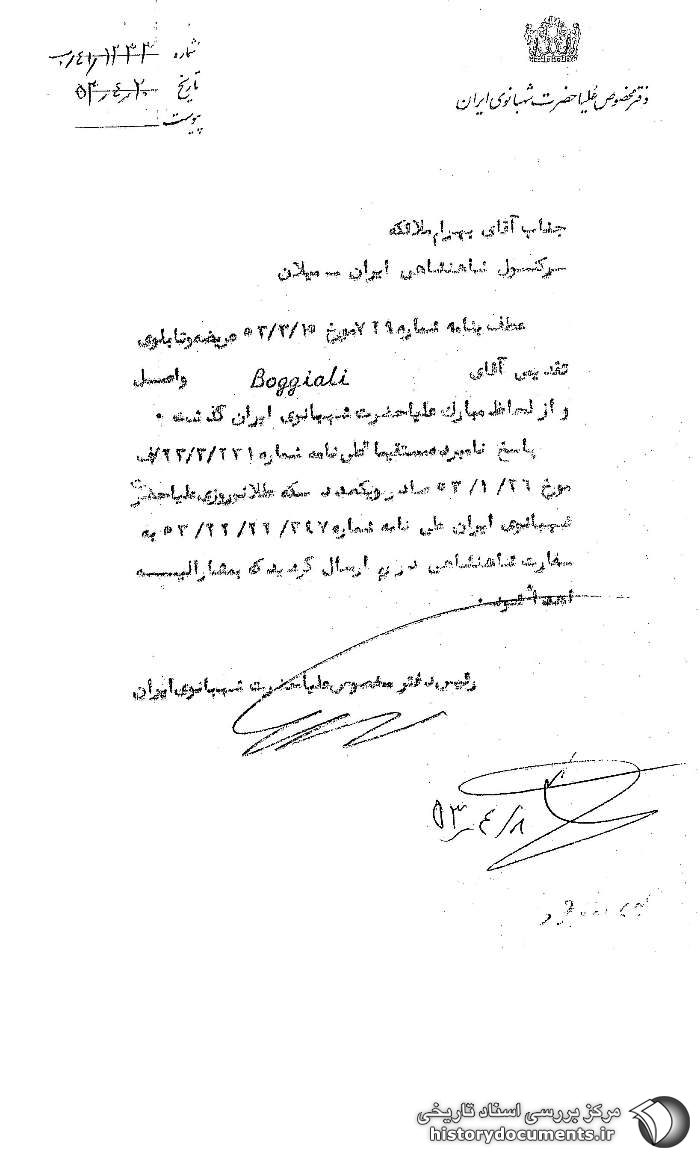 دفتر مخصوص علیاحضرت شهبانوی ایران
شماره
تاریخ ۵۳/۴/۲
پیوست
جناب آقای بهرام ملائکه
سرکنسول شاهنشاهی ایران - میلان
عطف بنامه شماره ۷۲۹ مورخ ۵۳/۳/۲۵ عریضه و تابلوی
تقدیمی آقای Boggiali واصل
و از لحاظ مبارک علیاحضرت شهبانوی ایران گذشت .
پاسخ نامبرده مستقیما طی نامه شماره
مورخ ۵۳/۱/۲۶ صادر و یکعدد سکه طلا نوروزی علیاحضرت
شهبانوی ایران طی نامه شماره به
سفارت شاهنشاهی در رم ارسال گردید که بمشارالیه
اهدا شود .
رئیس دفتر مخصوص علیاحضرت شهبانوی ایران
۵۳/۴/۸
مرکز بررسی اسناد تاریخی
historydocuments.ir